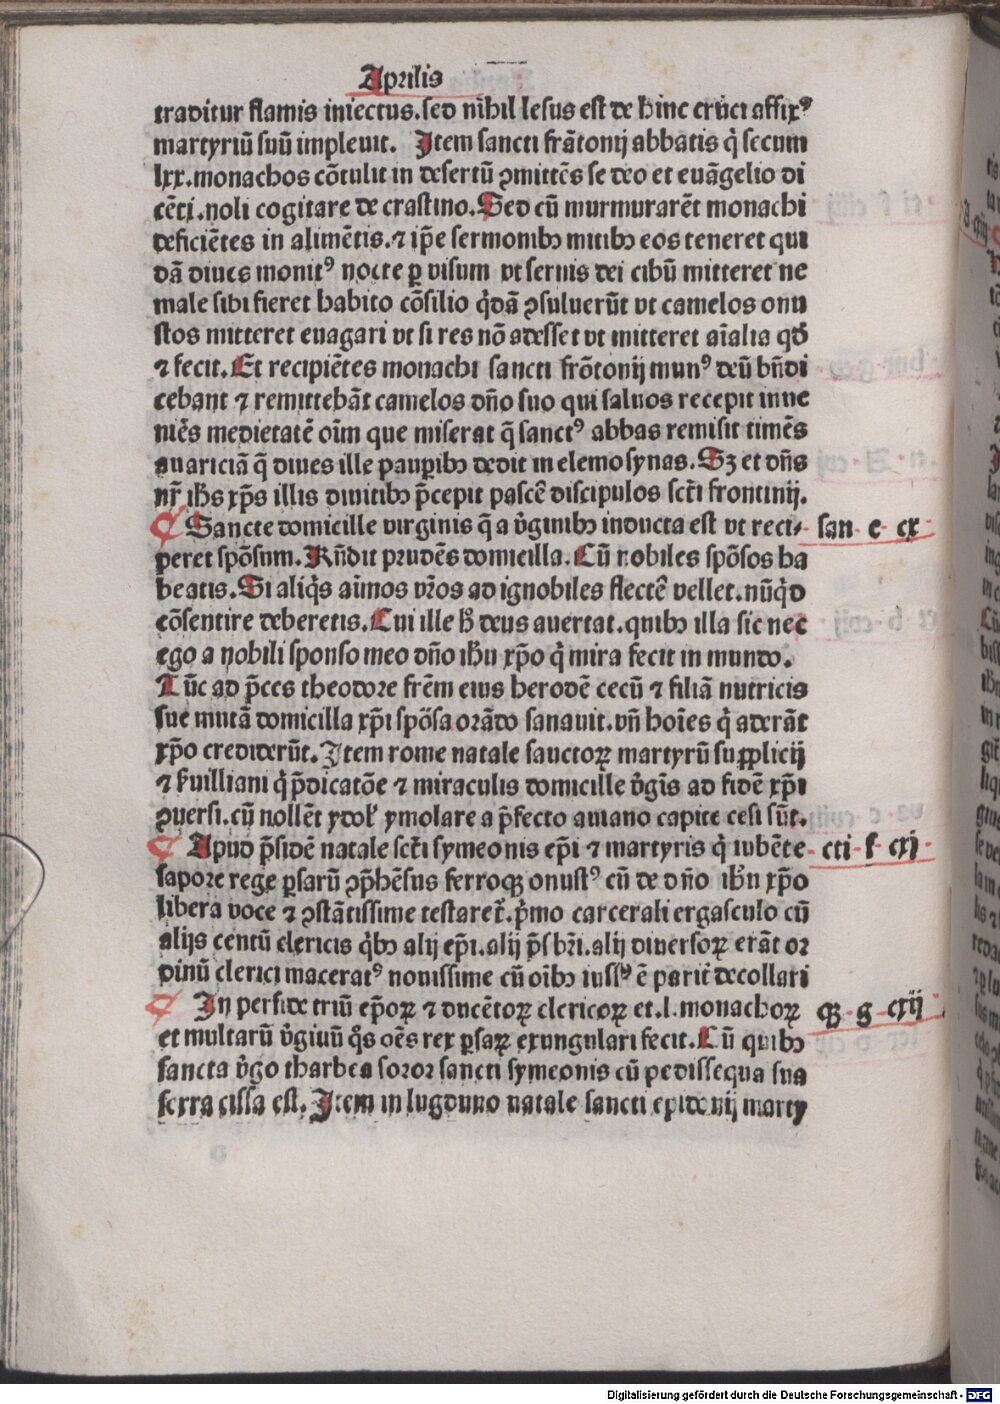 Aprilis
traditur flamis iniectus.sed nihil lesus est de hinc cruci affixꝰ
martyriū suū impleuit. Item sancti frātonij abbatis q̇ secum
lxx.monachos cōtulit in desertū ꝯmittēs se deo et euāgelio di
cēti.noli cogitare de crastino.Sed cū murmurarēt monachi
deficiētes in alimētis.⁊ ip̄e sermonibꝫ mitibꝫ eos teneret qui
dā diues monitꝰ nocte ꝑ visum vt seruis dei cibū mitteret ne
male sibi fieret habito cōsilio q̇dā ꝯsuluerūt vt camelos onu
stos mitteret euagari vt si res nō adesset vt mitteret aīalia qd̄
⁊ fecit.Et recipiētes monachi sancti frōtonij munꝰ deū bn̄di
cebant ⁊ remittebāt camelos dn̄o suo qui saluos recepit inue
niēs medietatē oīm que miserat q̄ sanctꝰ abbas remisit timēs
auariciā q̄ diues ille pauꝑibꝫ dedit in elemosynas.Sꝫ et dn̄s
nr̄ ih̄s xp̄s illis diuitibꝫ p̄cepit pascē discipulos sct̄i frontinij.
Sancte domicille virginis q̄ a v̇ginibꝫ inducta est vt reci- san e cx
peret spōsum.Rn̄dit prudēs domicilla.Cū nobiles spōsos ha
beatis.Si aliq̇s aīmos vr̄os ad ignobiles flectē vellet.nūq̇d
cōsentire deberetis.Cui ille h̄ deus auertat.quibꝫ illa sic nec
ego a nobili sponso meo dn̄o ih̄u xp̄o q̇ mira fecit in mundo.
Tūc ad p̄ces theodore frēm eius herodē cecū ⁊ filiā nutricis
sue mutā domicilla xp̄i spōsa orādo sanauit.vn̄ hoīes q̇ aderāt
xp̄o crediderūt.Item rome natale sanctoꝝ martyrū supplicij
⁊ s̄uilliani q̇ p̄dicatōe ⁊ miraculis domicille v̇gīs ad fidē xp̄i
ꝯuersi.cū nollēt ydol' ymolare a p̄fecto auiano capite cesi sūt.
Apud p̄sidē natale sct̄i symeonis ep̄i ⁊ martyris q̇ iubēte- cti f cxj
sapore rege ꝑsarū ꝯp̄hēsus ferroqꝫ onustꝰ cū de dn̄o ih̄u xp̄o
libera voce ⁊ ꝯstātissime testaret̄.p̄mo carcerali ergasculo cū
alijs centū clericis q̇bꝫ alij ep̄i.alij p̄sbr̄i.alij diuersoꝝ erāt or
dinū clerici maceratꝰ nouissime cū oībꝫ iussꝰ ē parit̄ decollari
In perside triū ep̄oꝝ ⁊ ducētoꝝ clericoꝝ et.l.monachoꝝ qꝫ g cxij
et multarū v̇giuū q̇s oēs rex ꝑsaꝝ exungulari fecit.Cū quibꝫ
sancta v̇go tharbea soror sancti symeonis cū pedissequa sua
serra cissa est. Item in lugduno natale sancti epidonij marty
Digitalisierung gefördert durch die Deutsche Forschungsgemeinschaft - DFG